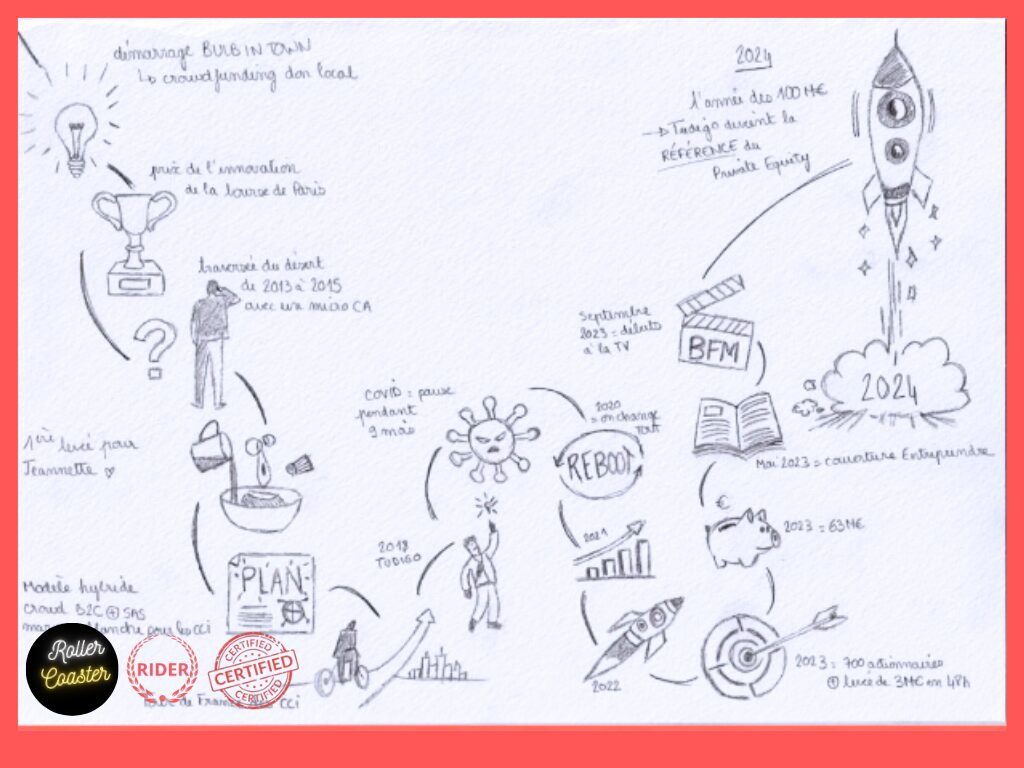 démarrage BULB IN TOWN
↳ crowdfunding don local
prix de l'innovation
de la bourse de Paris
traversée du désert
de 2013 à 2015
avec un micro CA
?
1ère levée pour
Jeannette ♡
PLAN
Modèle hybride
crowd B2C ⊕ SAS
blanche pour les CCI
de France CCI
Roller
Coaster
RIDER
CERTIFIED
CERTIFIED
CERTIFIED
2018
TUDIGO
covid = pause
pendant
9 mois
2020
= on change
tout
REBOOT
2021
2022
2023 = 700 actionnaires
⊕ levée de 3M€ en 48h
€
2023 = 63M€
Mai 2023 = couverture Entreprendre
Septembre
2023 = débuts
à la TV
BFM
2024
l'année des 100M€
→ Tudigo devient la
RÉFÉRENCE du
Private Equity
2024